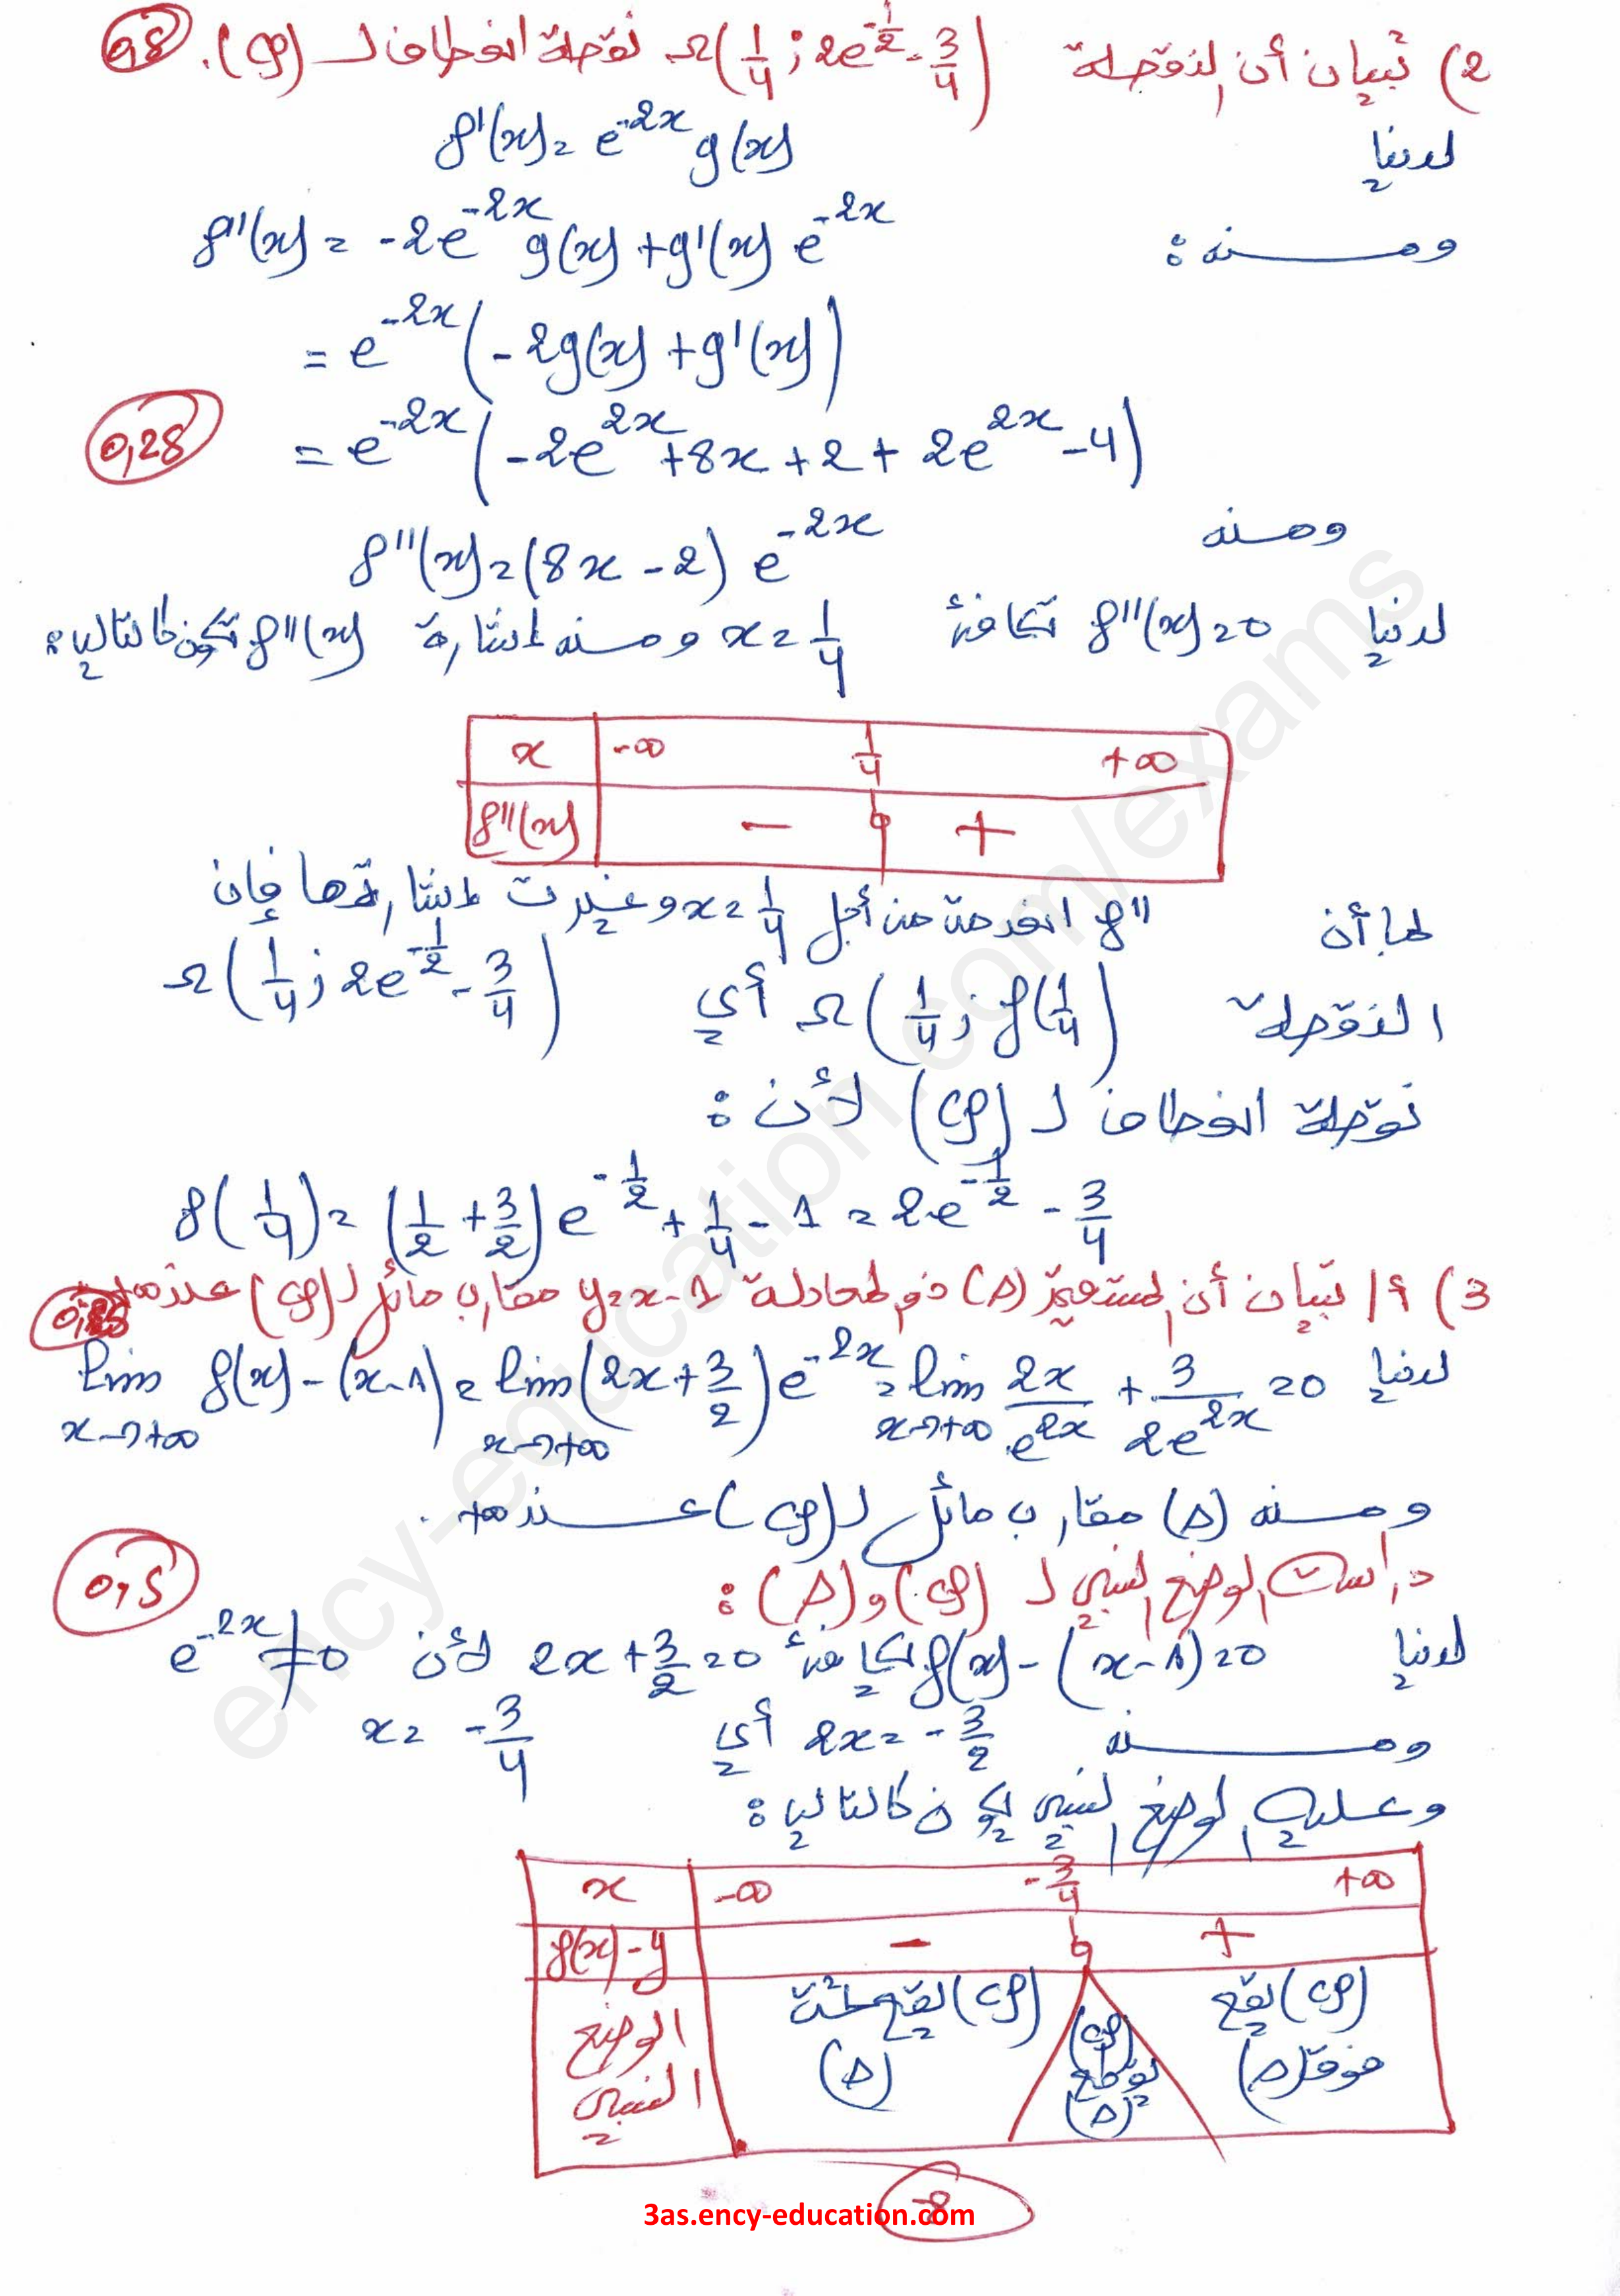 2) تبيان أن النقطة Ω(1/4 ; 2e^{-1/2} - 3/4) نقطة انعطاف لـ (Cf). 0,5
لدينا f'(x) = e^{-2x} g(x)
ومنه : f''(x) = -2e^{-2x} g(x) + g'(x) e^{-2x}
= e^{-2x} (-2g(x) + g'(x))
= e^{-2x} (-2e^{2x} + 8x + 2 + 2e^{2x} - 4) 0,25
ومنه f''(x) = (8x - 2) e^{-2x}
لدينا f''(x) = 0 تكافئ x = 1/4 ومنه إشارة f''(x) تكون كالتالي :
x -∞ 1/4 +∞
f''(x) - 0 +
بما أن f'' انعدمت من أجل x = 1/4 وغيرت إشارتها فإن
النقطة Ω(1/4 ; f(1/4)) أي Ω(1/4 ; 2e^{-1/2} - 3/4)
نقطة انعطاف لـ (Cf) لأن :
f(1/4) = (1/2 + 3/2) e^{-1/2} + 1/4 - 1 = 2e^{-1/2} - 3/4
3) أ/ تبيان أن المستقيم (Δ) ذو المعادلة y = x - 1 مقارب مائل لـ (Cf) عند +∞
لدينا lim_{x→+∞} f(x) - (x-1) = lim_{x→+∞} (2x + 3/2) e^{-2x} = lim_{x→+∞} 2x/e^{2x} + 3/2e^{2x} = 0
ومنه (Δ) مقارب مائل لـ (Cf) عند +∞ .
دراسة الوضع النسبي لـ (Cf) و (Δ) : 0,5
لدينا f(x) - (x-1) = 0 تكافئ 2x + 3/2 = 0 لأن e^{-2x} ≠ 0
ومنه 2x = -3/2 أي x = -3/4
وعليه الوضع النسبي يكون كالتالي :
x -∞ -3/4 +∞
f(x) - y - 0 +
الوضع النسبي
(Cf) يقع تحت (Δ)
(Cf) يقطع (Δ)
(Cf) يقع فوق (Δ)
8
3as.ency-education.com
ency-education.com/exams